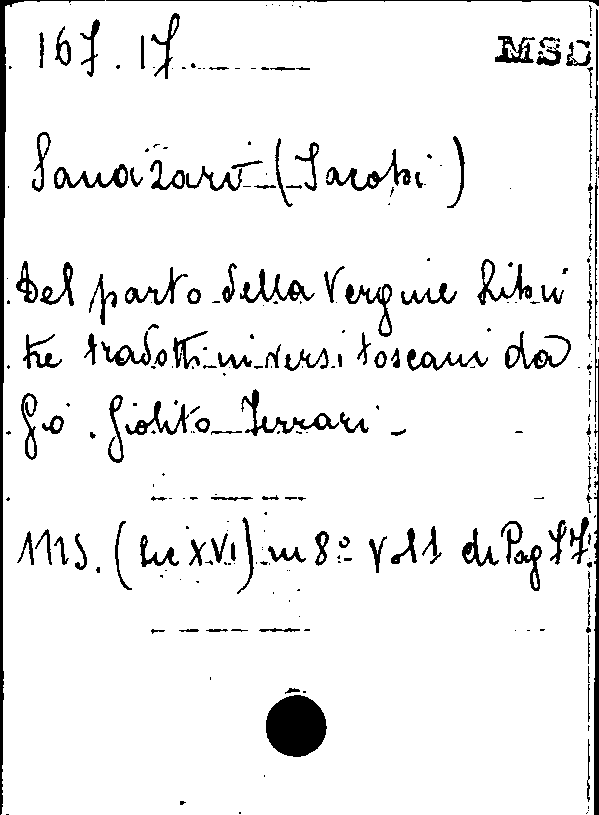 167.17. MSS
Sanazaro (Jacobi)
Del parto della Vergine Libri
tre tradotti in versi toscani da
Gio. Giolito Ferrari -
MS. (Sec XVI) in 8º Vol 1 di Pag 77.